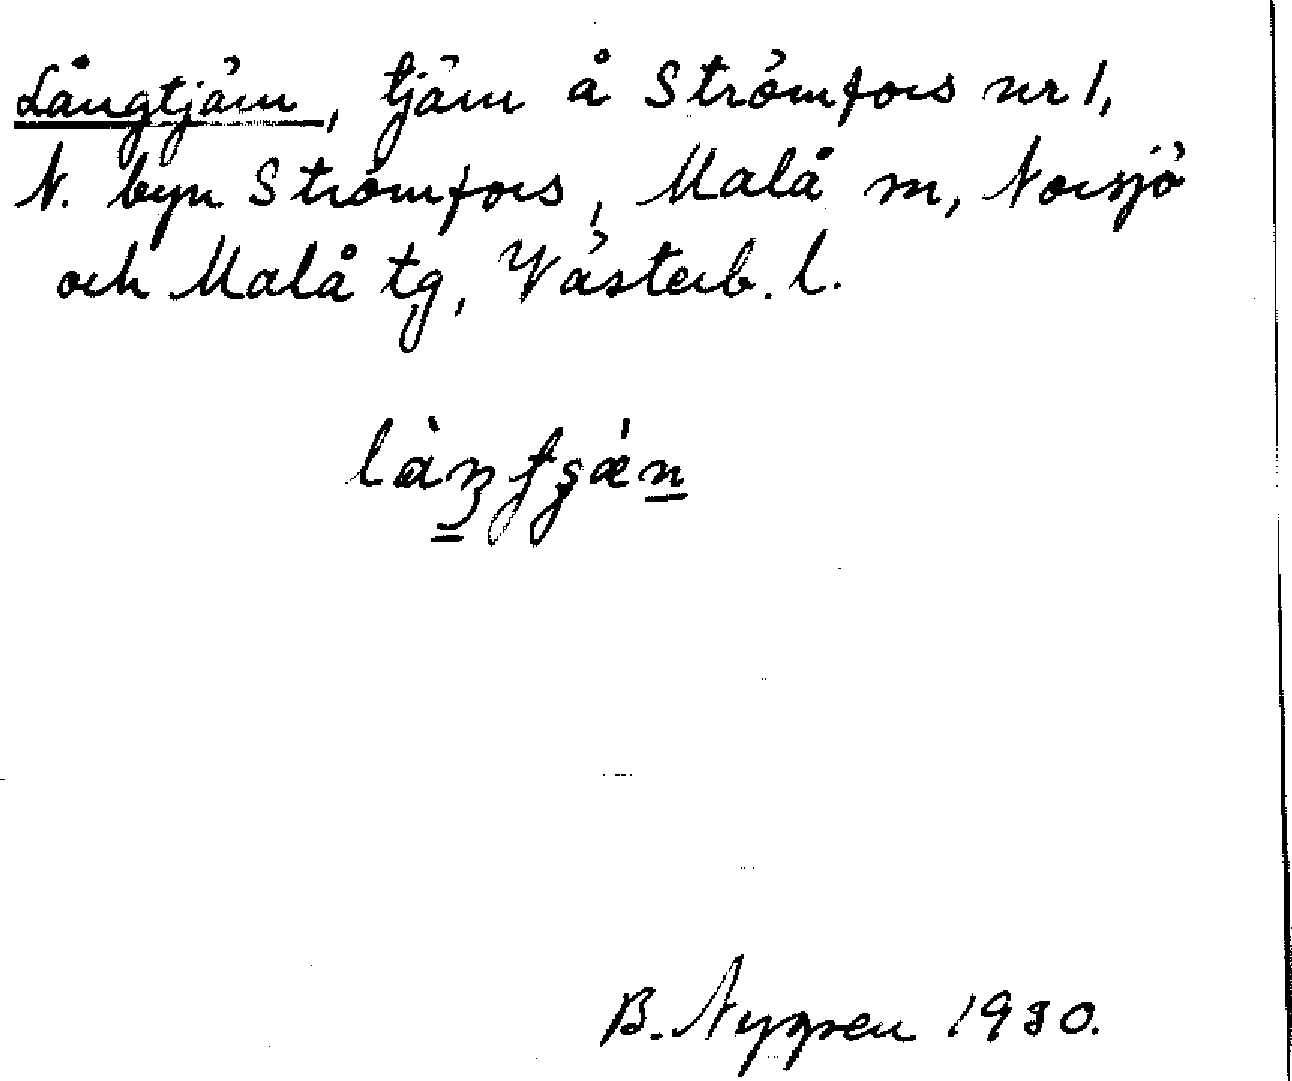 Långtjärn, tjärn å Strömfors nr 1,
N. byn Strömfors, Malå sn, Norsjö
och Malå tg, Västerb. l.
B. Nygren 1930.